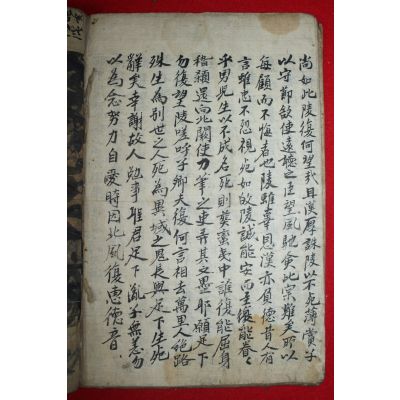 尚如此陵復何望哉且漢厚誅陵以不死薄賞子
以守節欲使遠聽之臣望風馳命此實難矣所以
每顧而不悔者也陵雖辜恩漢亦負德昔人有
言雖忠不忍視死如故陵誠能安而主復能眷〻
乎男兒生以不成名死則葬蠻夷中誰復能屈身
稽顙還向北闕使刀筆之吏弄其墨耶願足下
勿復望陵嗟呼子卿夫復何言相去萬里人絕路
殊生為別世之人死為異域之鬼長與足下生死
辭矣幸謝故人勉事聖君足下胤子無恙勿
以為念努力自愛時因北風復惠德音